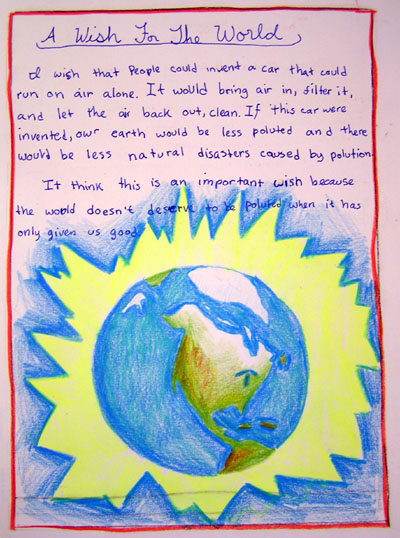 A Wish For The World
I wish that People could invent a car that could
run on air alone. It would bring air in, filter it,
and let the air back out, clean. If this car were
invented, our earth would be less poluted and there
would be less natural disasters caused by polution.
It think this is an important wish because
the world doesn't deserve to be poluted when it has
only given us good